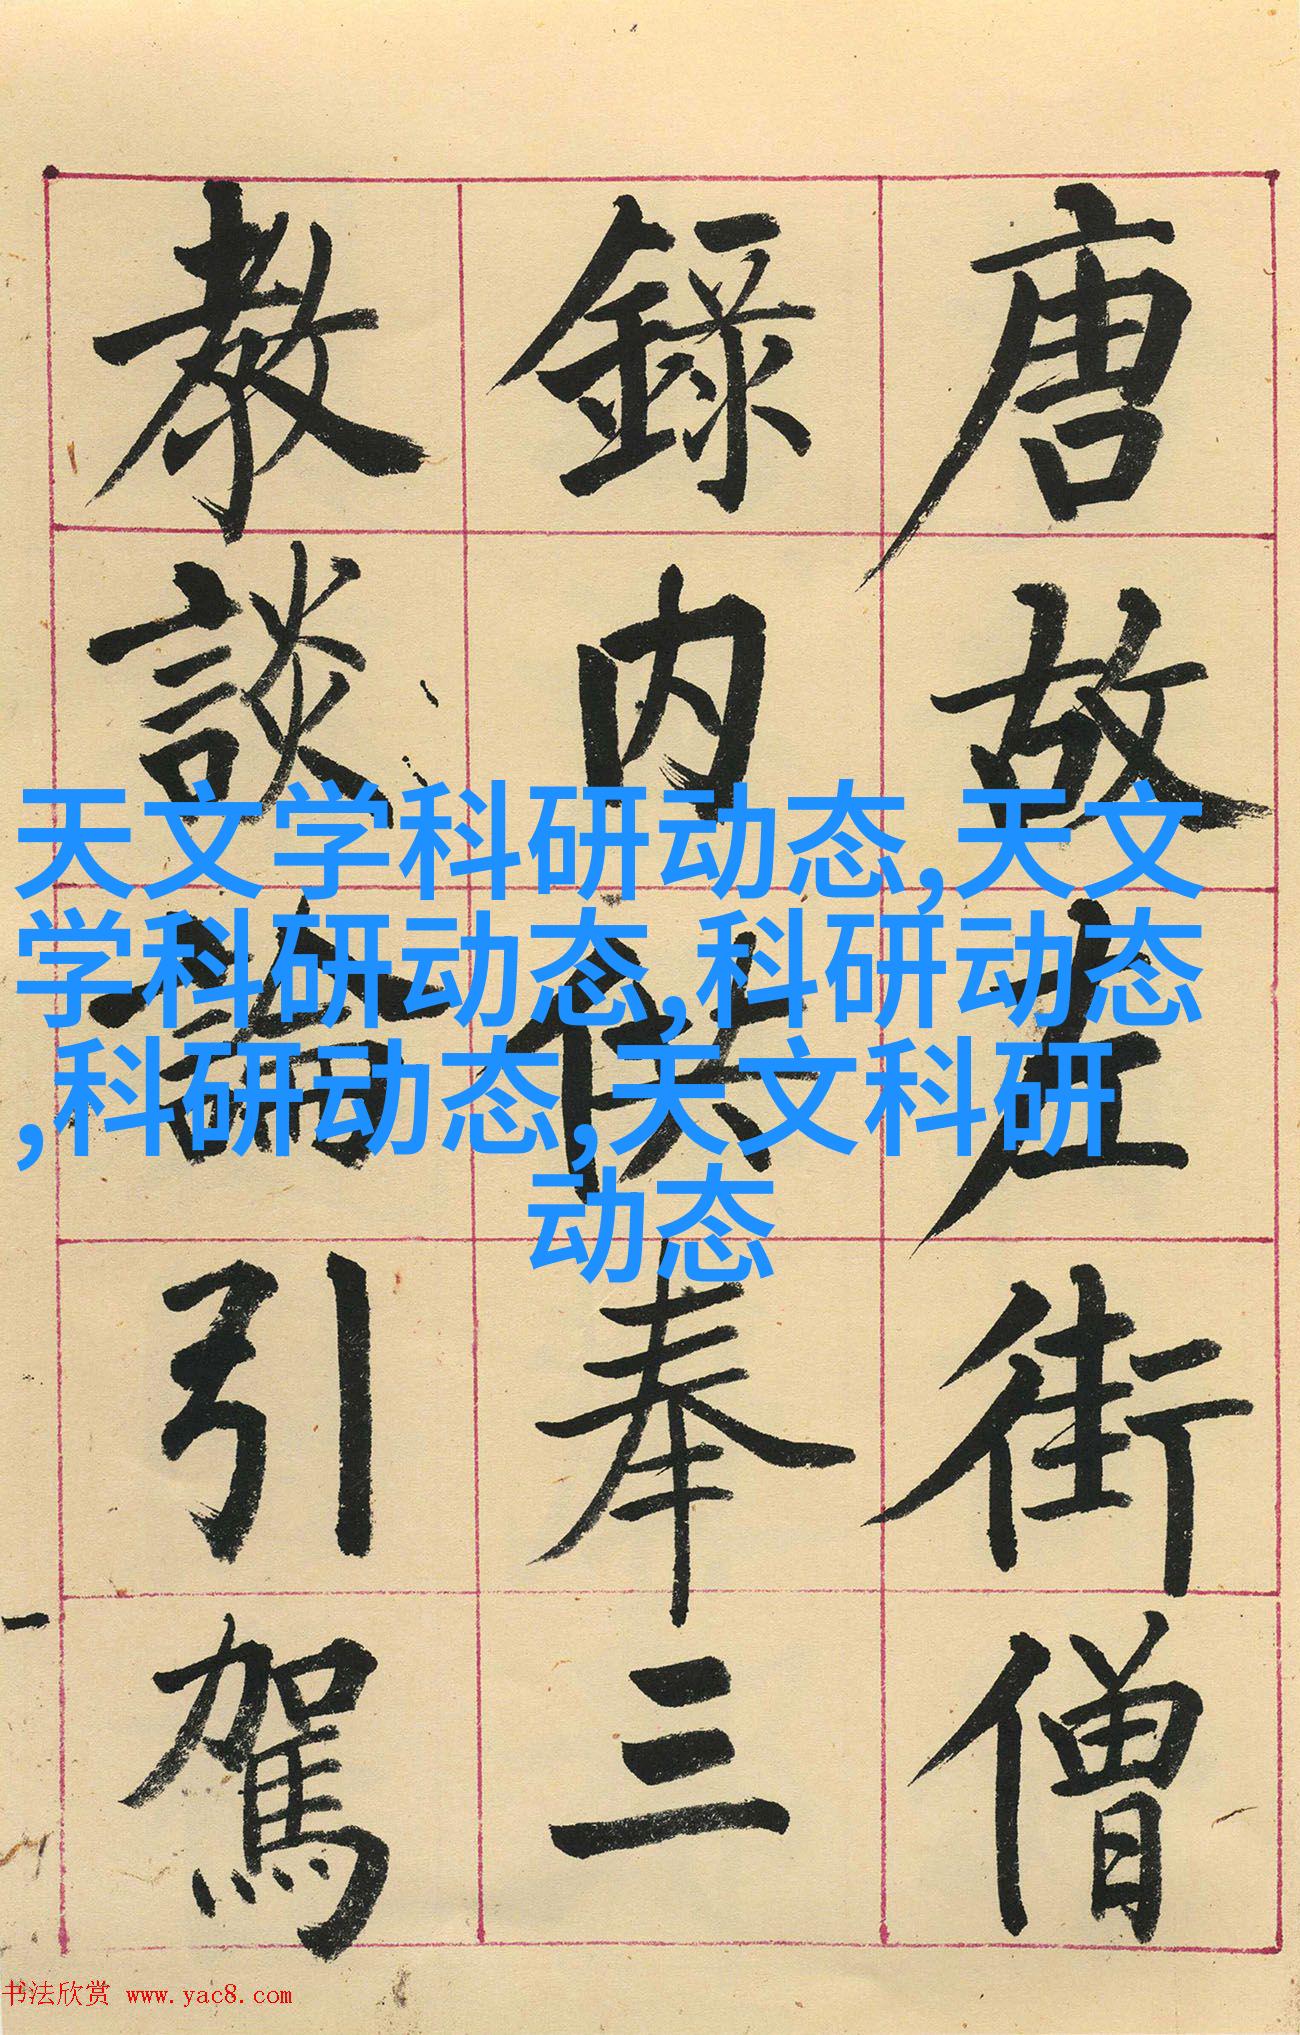 唐故左街僧
錄内供奉三
教談論引駕
天文学科研动态,天文
学科研动态,科研动态
,科研动态,天文科研
动态
书法欣赏 www.yac8.com